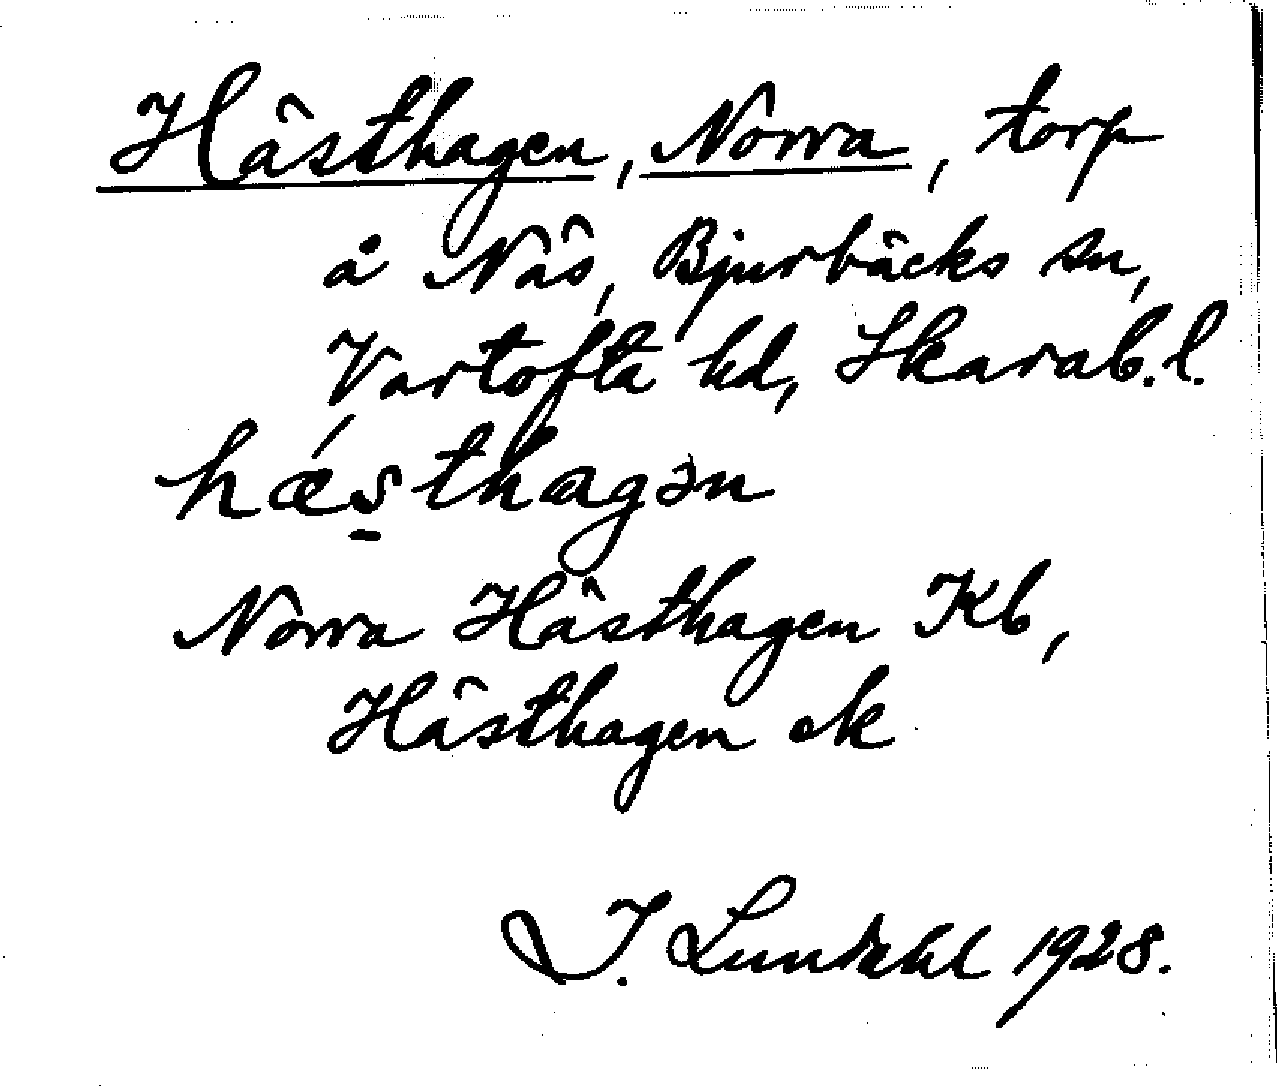 Hästhagen, Norra, torp
å Näs, Bjurbäcks sn,
Vartofta hd, Skarab. l.
hæ´s̠thagən
Norra Hästhagen Kb,
Hästhagen ek
I. Lundahl 1928.